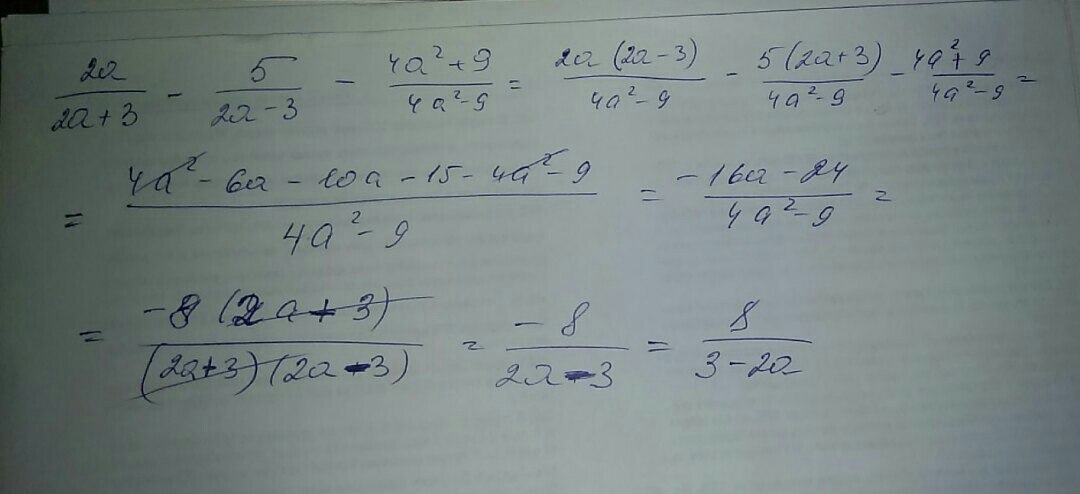 2a/(2a+3) - 5/(2a-3) - (4a²+9)/(4a²-9) = 2a(2a-3)/(4a²-9) - 5(2a+3)/(4a²-9) - (4a²+9)/(4a²-9) =
= (4a² - 6a - 10a - 15 - 4a² - 9)/(4a²-9) = (-16a - 24)/(4a²-9) =
= -8(2a+3)/((2a+3)(2a-3)) = -8/(2a-3) = 8/(3-2a)